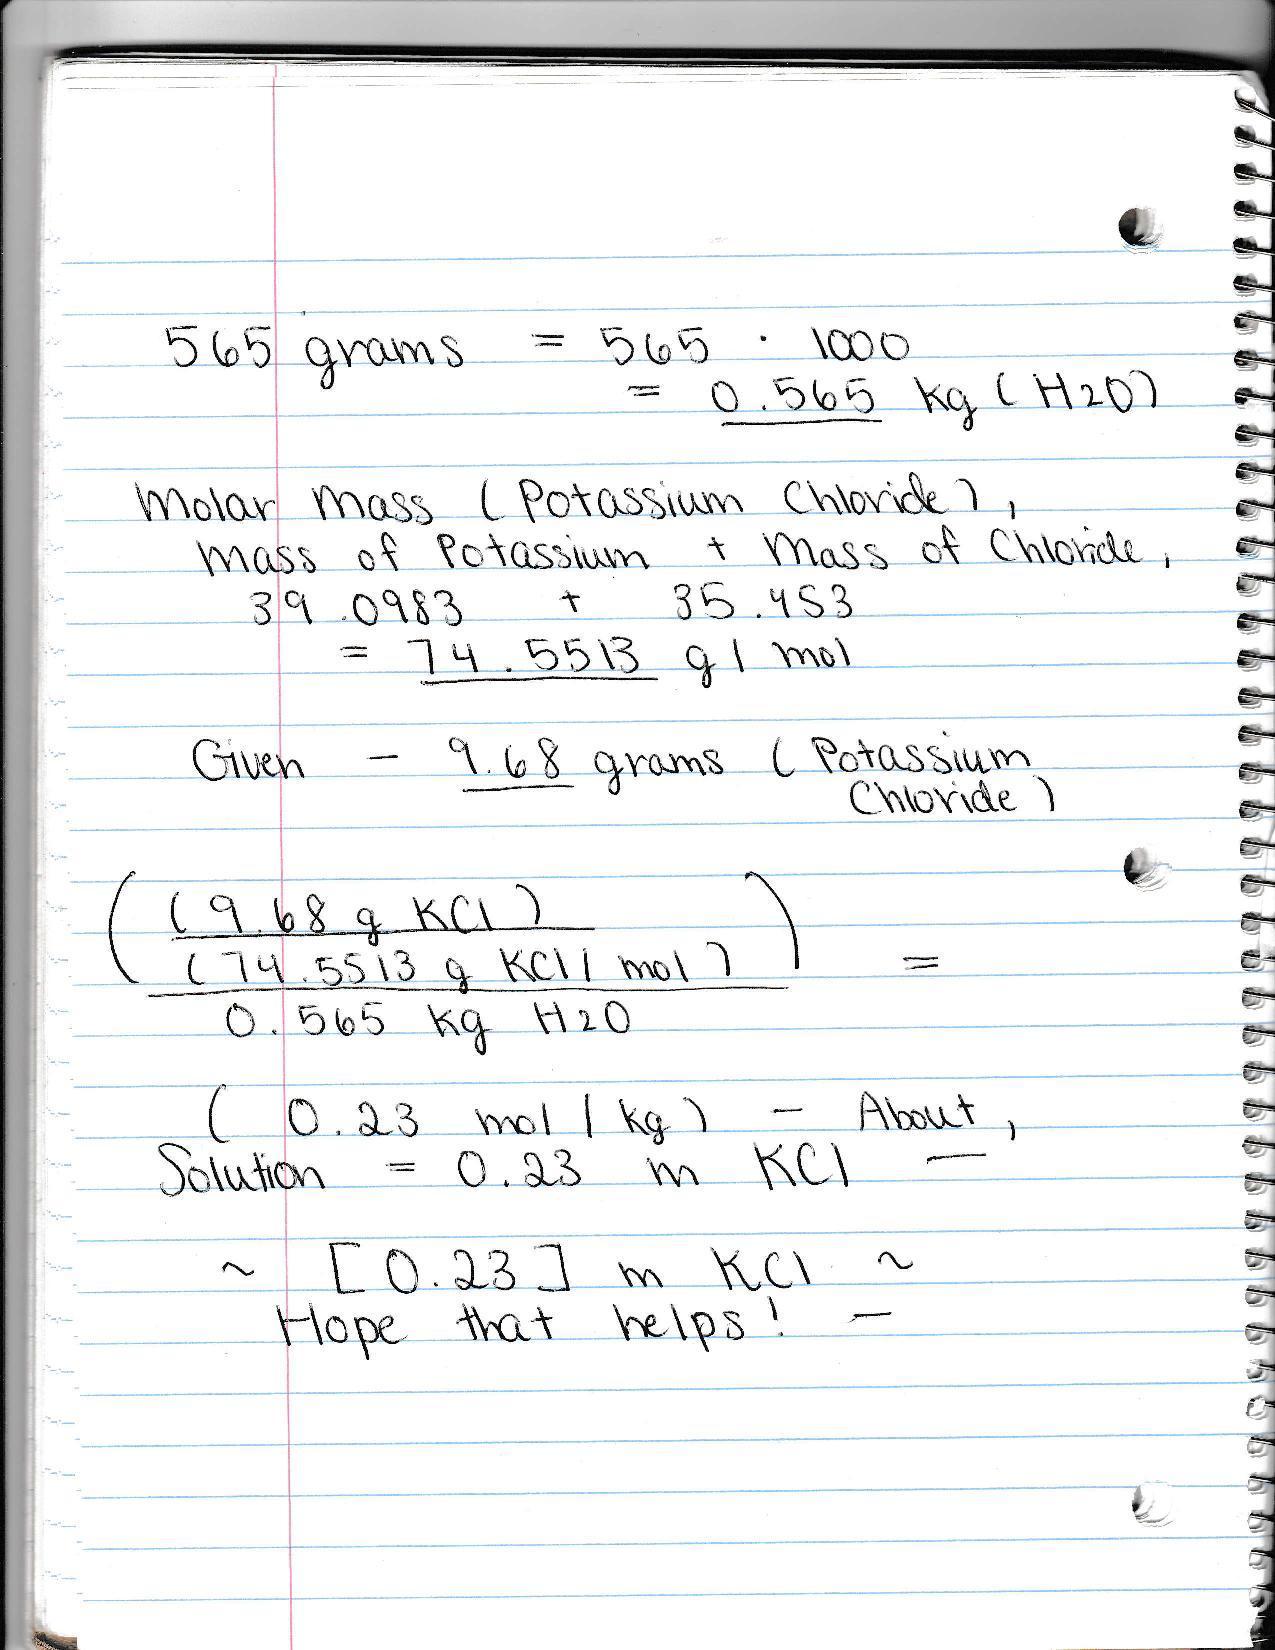 565 grams = 565 · 1000
= 0.565 kg (H2O)
Molar Mass (Potassium Chloride),
Mass of Potassium + Mass of Chloride,
39.0983 + 35.453
= 74.5513 g/mol
Given - 9.68 grams (Potassium
Chloride)
((9.68 g KCl)
(74.5513 g KCl/mol)) =
0.565 kg H2O
(0.23 mol/kg) - About,
Solution = 0.23 m KCl -
~ [0.23] m KCl ~
Hope that helps! -